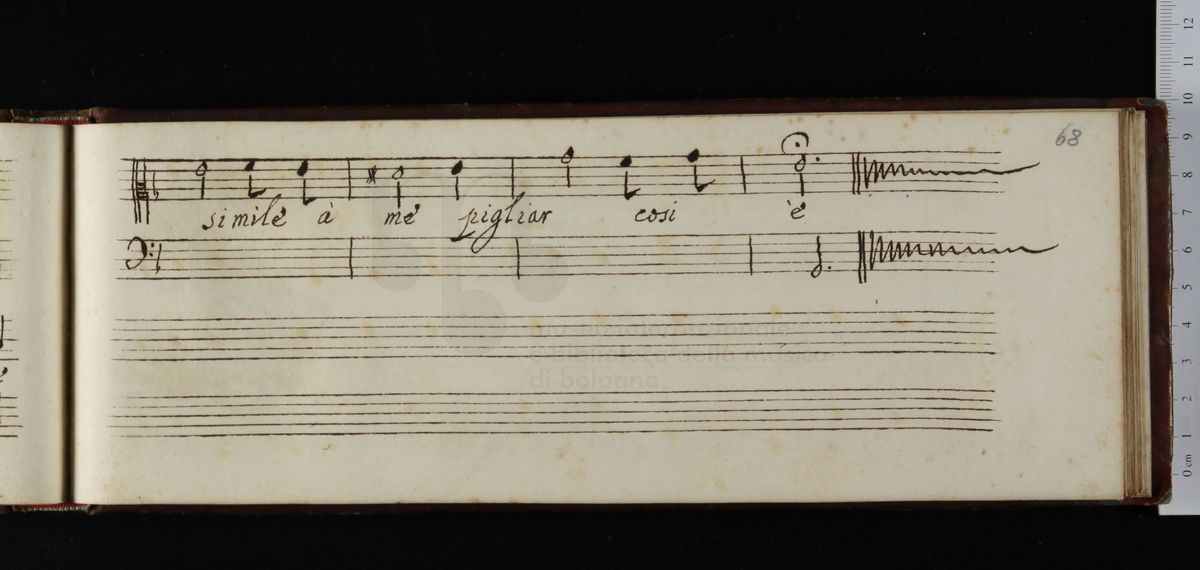 68
simile à me pigliar cosi è
museo internazionale
e biblioteca della musica
di bologna
12
11
10
9
8
7
6
5
4
3
2
1
0 cm